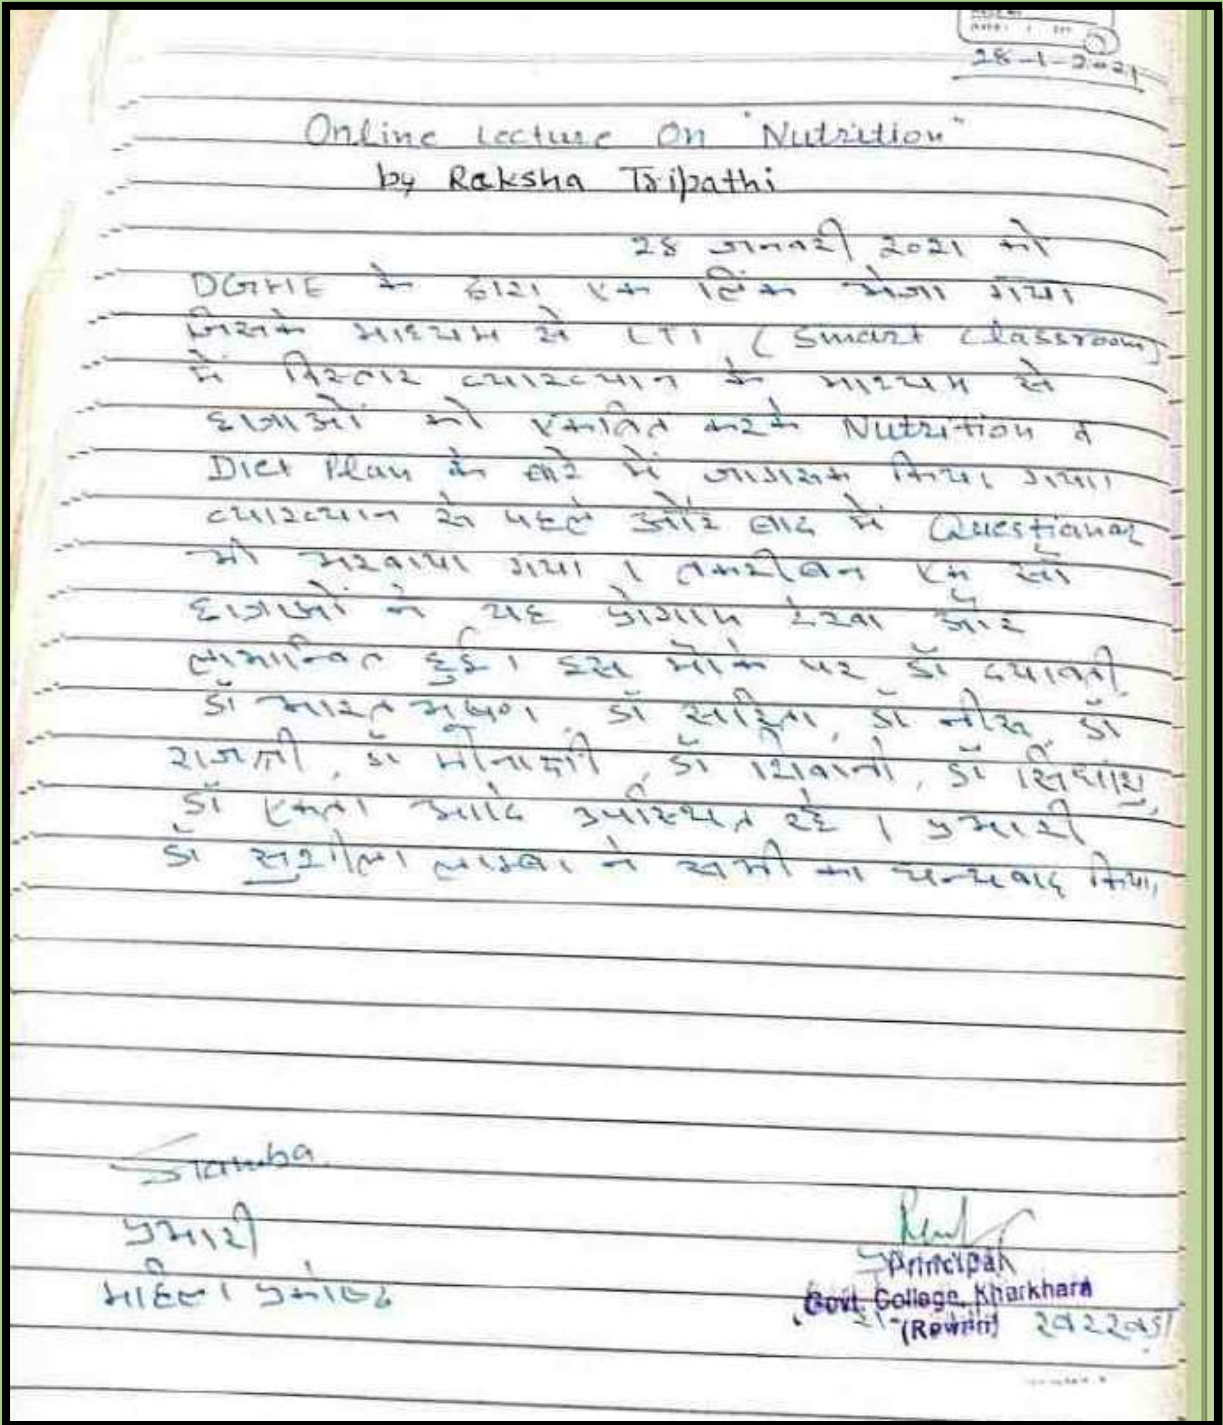 28-1-2021
Online Lecture On "Nutrition"
by Raksha Tripathi
28 जनवरी 2021 को
DGHE के द्वारा एक लिंक भेजा गया
जिसके माध्यम से (Smart Classroom)
में विस्तार व्याख्यान के माध्यम से
छात्राओं को एकत्रित करके Nutrition व
Diet Plan के बारे में जागरूक किया गया।
व्याख्यान से पहले और बाद में Questionar
भी भरवाया गया । तकरीबन एक सौ
छात्राओं ने यह प्रोग्राम देखा और
लाभान्वित हुई। इस मौके पर डॉ दयावती,
डॉ भारत भूषण, डॉ सविता, डॉ नीरू, डॉ
राजश्री, डॉ मीनाक्षी, डॉ शिवानी, डॉ
डॉ एकता आदि उपस्थित रहे । प्रभारी
डॉ सुशीला लाम्बा ने सभी का धन्यवाद किया,
SLamba
प्रभारी
महिला प्रकोष्ठ
Principal
Govt. College, Kharkhara
(Rewari) खरखड़ा